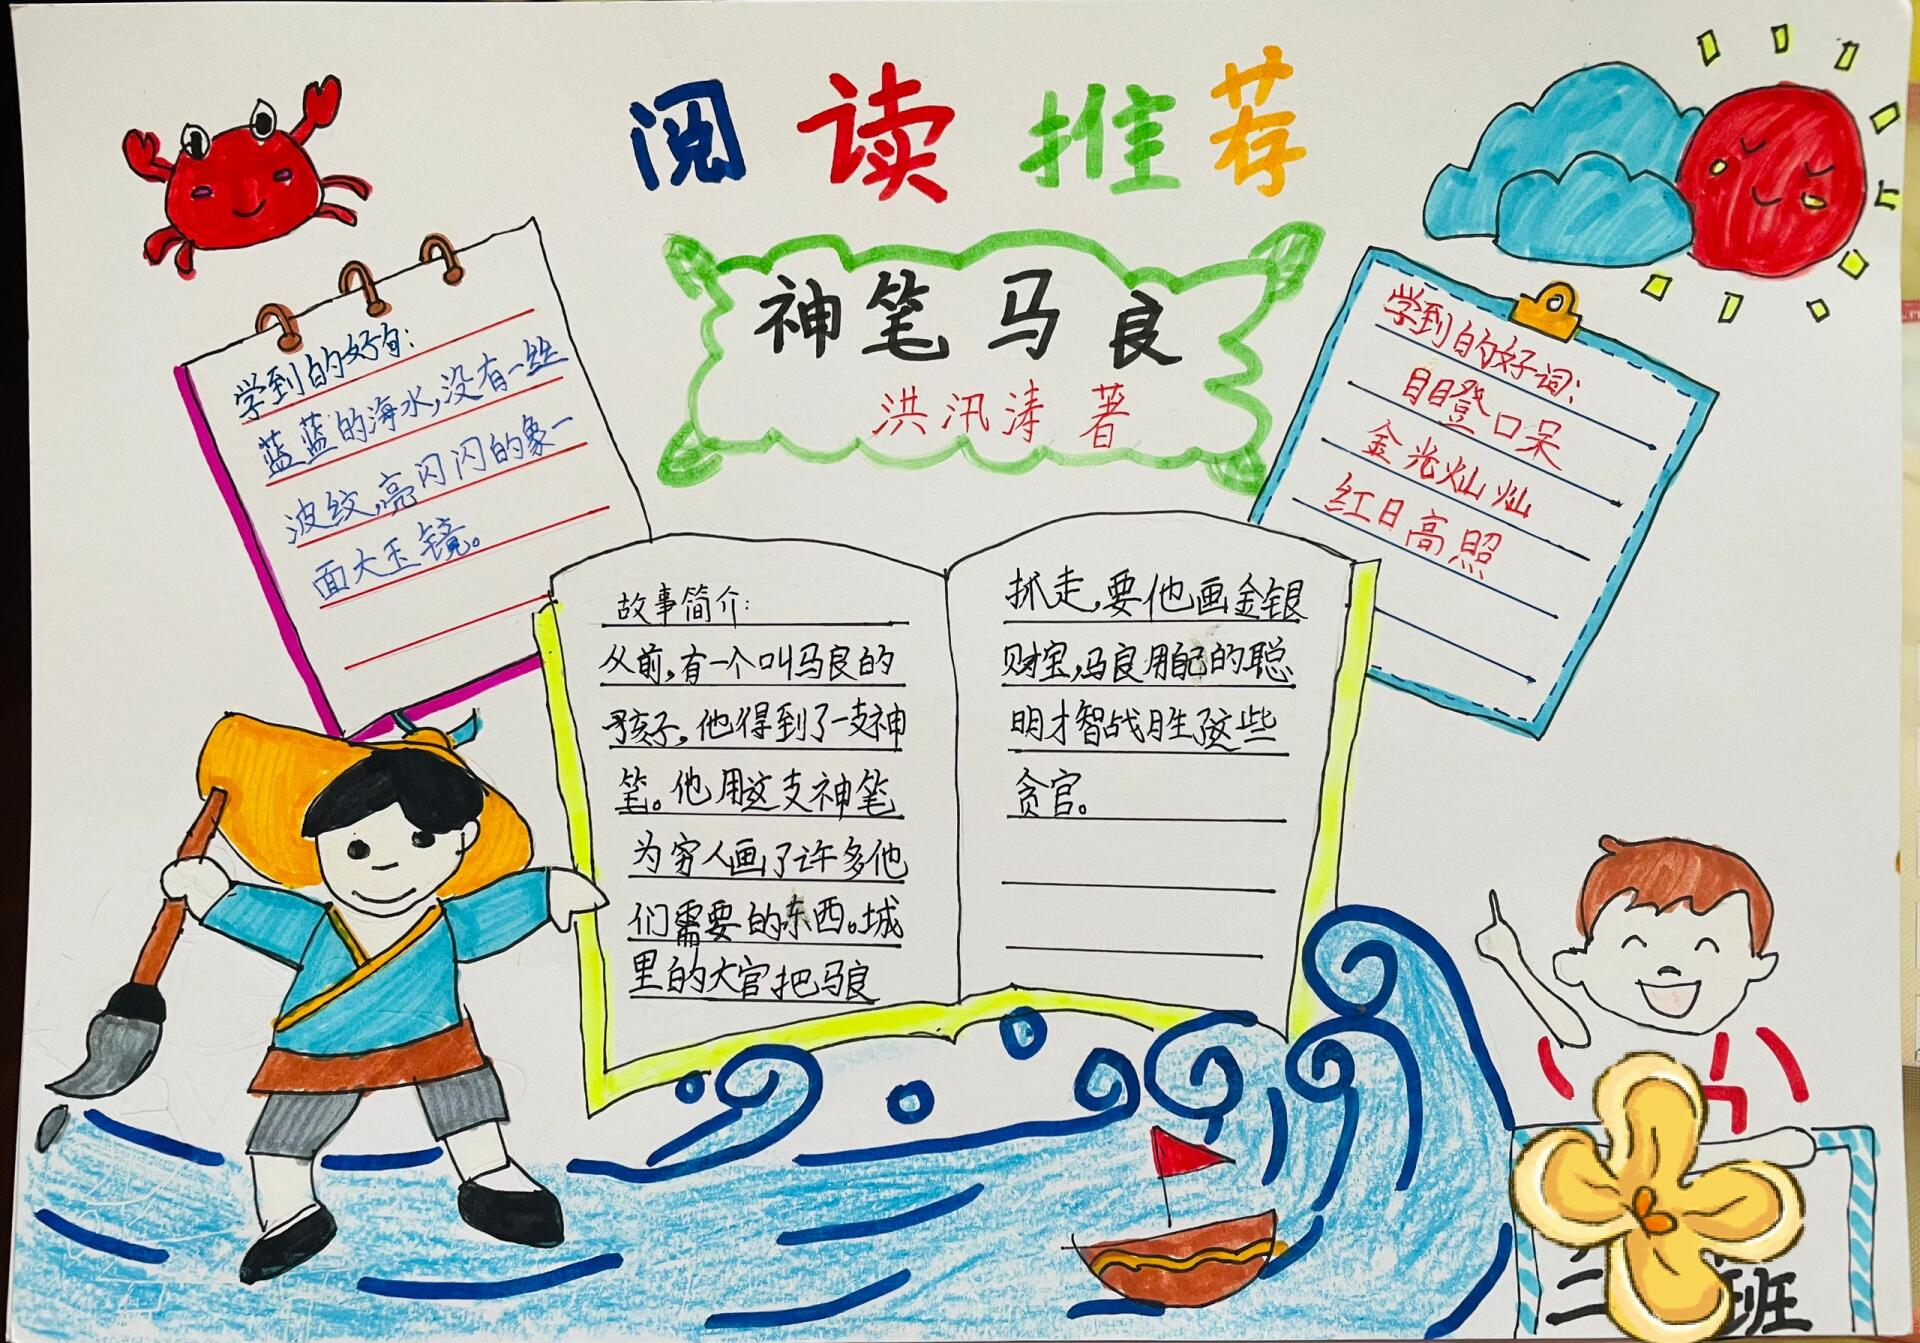 阅读推荐
神笔马良
洪汛涛 著
学到的好句:
蓝蓝的海水,没有一丝
波纹,亮闪闪的象一
面大玉镜。
学到的好词:
目瞪口呆
金光灿灿
红日高照
故事简介:
从前,有一个叫马良的
孩子,他得到了一支神
笔。他用这支神笔
为穷人画了许多他
们需要的东西。城
里的大官把马良
抓走,要他画金银
财宝,马良用自己的聪
明才智战胜了这些
贪官。
二 班